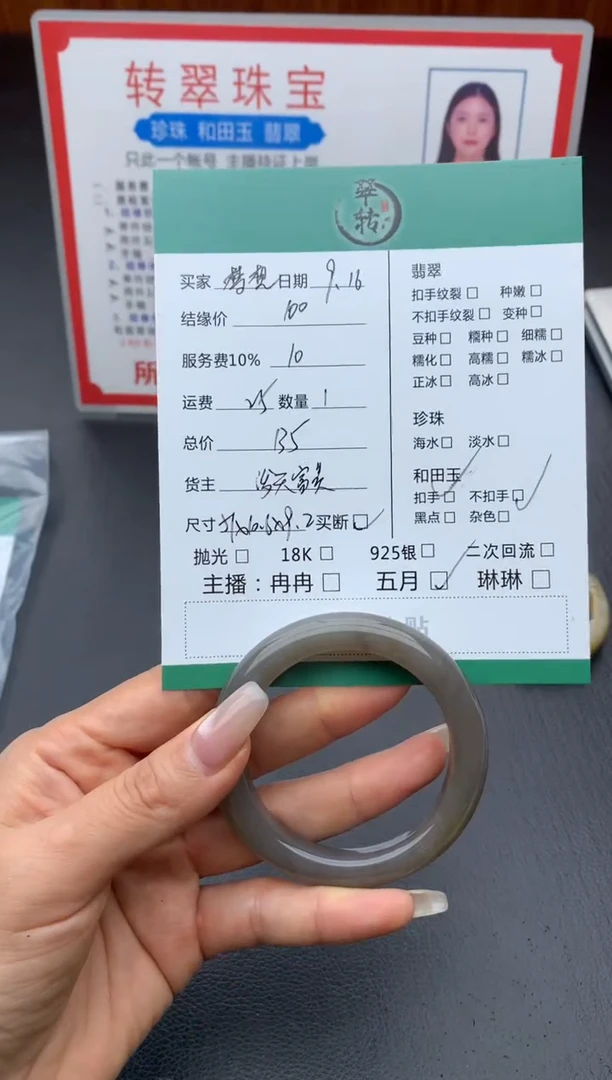 转翠珠宝
珍珠 和田玉 翡翠
只此一个账号 主播持证上岗
所
翠转
买家 梦想 日期 9.16
结缘价 100
服务费10% 10
运费 25 数量 1
总价 135
货主
尺寸 买断☐
翡翠
扣手纹裂☐ 种嫩☐
不扣手纹裂☐ 变种☐
豆种☐ 糯种☐ 细糯☐
糯化☐ 高糯☐ 糯冰☐
正冰☐ 高冰☐
珍珠
海水☐ 淡水☐
和田玉
扣手☐ 不扣手☐
黑点☐ 杂色☐
抛光☐ 18K☐ 925银☐ 二次回流☐
主播：冉冉☐ 五月☐ 琳琳☐
贴